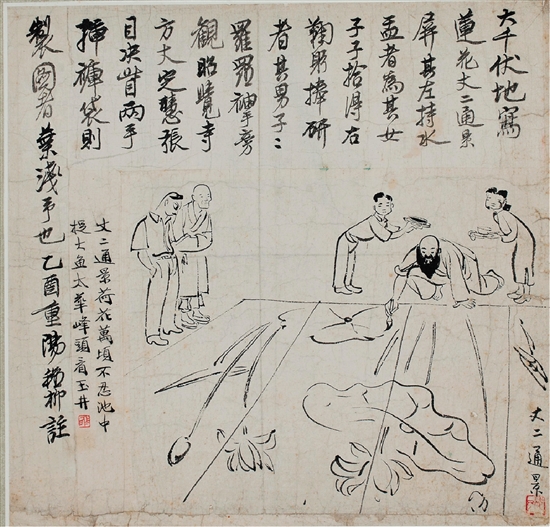 大千伏地寫
蓮花丈二通景
屏其左持水
盂者為其女
子子拾得右
鞠躬捧研
者其男子〻
羅羅袖手旁
觀昭覺寺
方丈定慧張
目決眥兩手
插褲袋則
製圖者葉淺予也乙酉重陽稚柳註
丈二通景荷花萬頃不忍池中
捉大魚太華峰頭看玉井
丈二通景